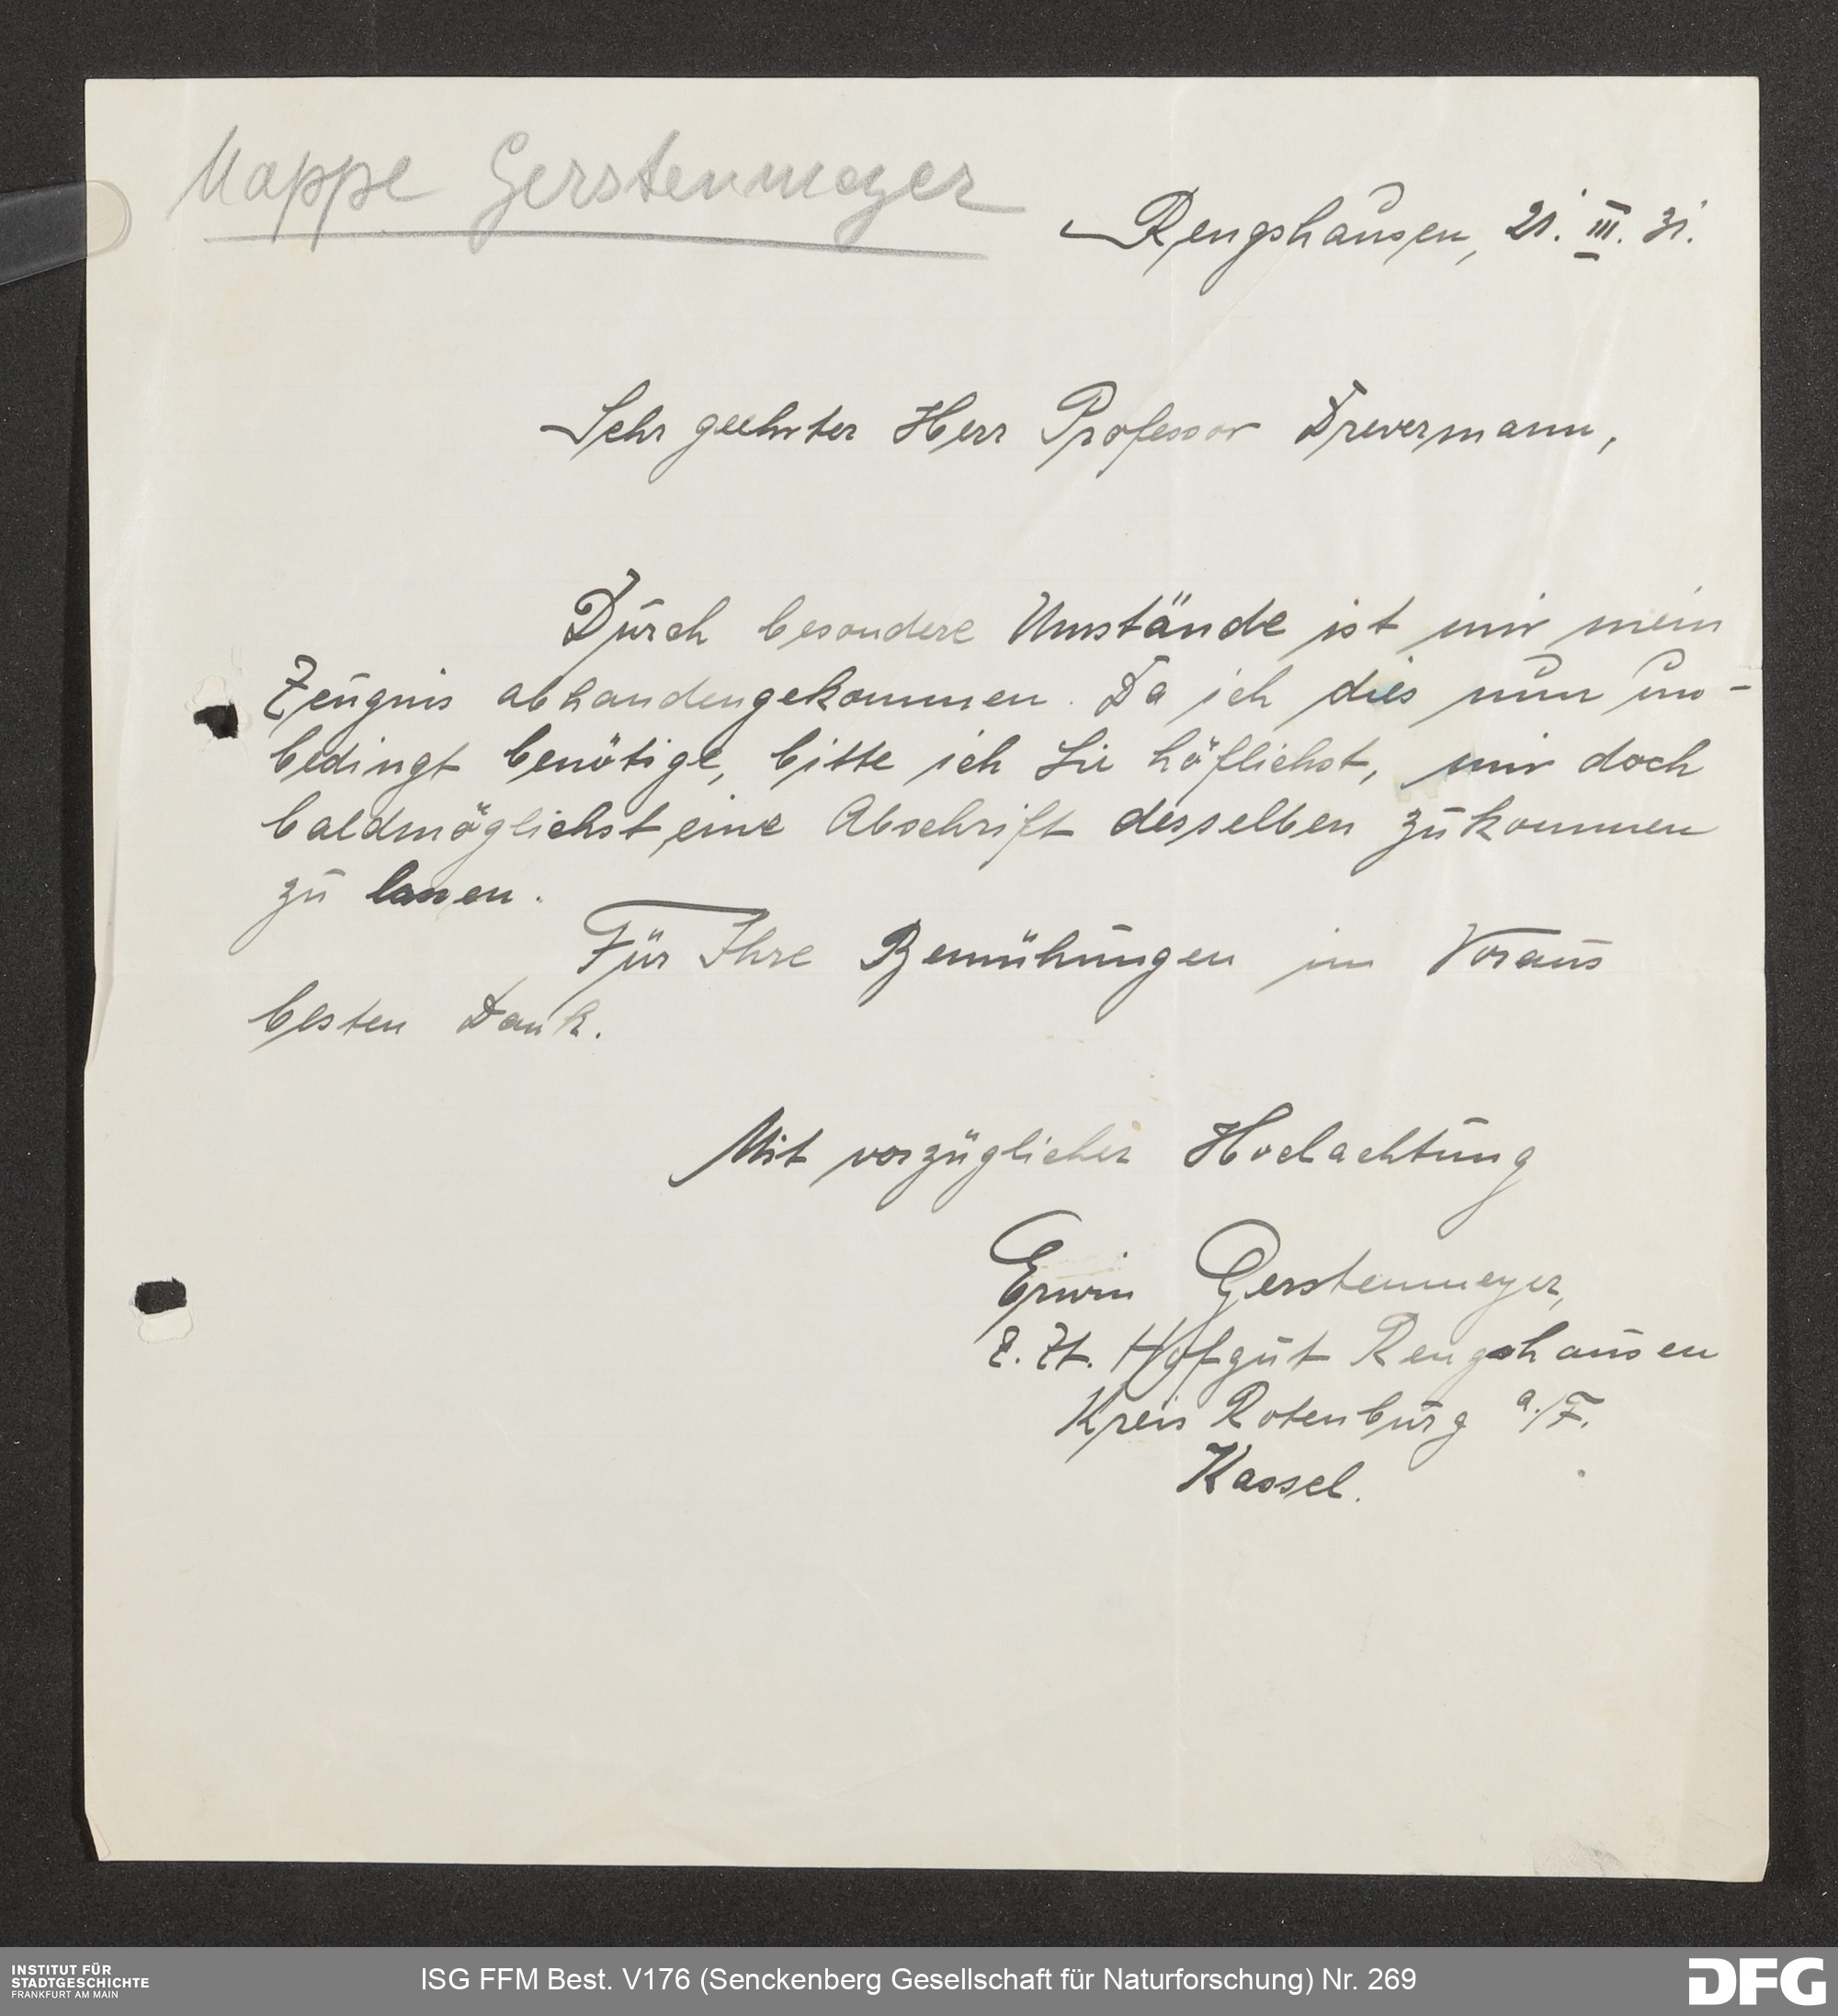 Mappe Gerstenmeyer
Rengshausen, 21. III. 31.
Sehr geehrter Herr Professor Drevermann,
Durch besondere Umstände ist mir mein
Zeugnis abhandengekommen. Da ich dies nun un-
bedingt benötige, bitte ich Sie höflichst, mir doch
baldmöglichst eine Abschrift desselben zukommen
zu lassen.
Für Ihre Bemühungen im Voraus
besten Dank.
Mit vorzüglicher Hochachtung
Erwin Gerstenmeyer,
z. Zt. Hofgut Rengshausen
Kreis Rotenburg a./F.
Kassel.
INSTITUT FÜR
STADTGESCHICHTE
FRANKFURT AM MAIN
ISG FFM Best. V176 (Senckenberg Gesellschaft für Naturforschung) Nr. 269
DFG